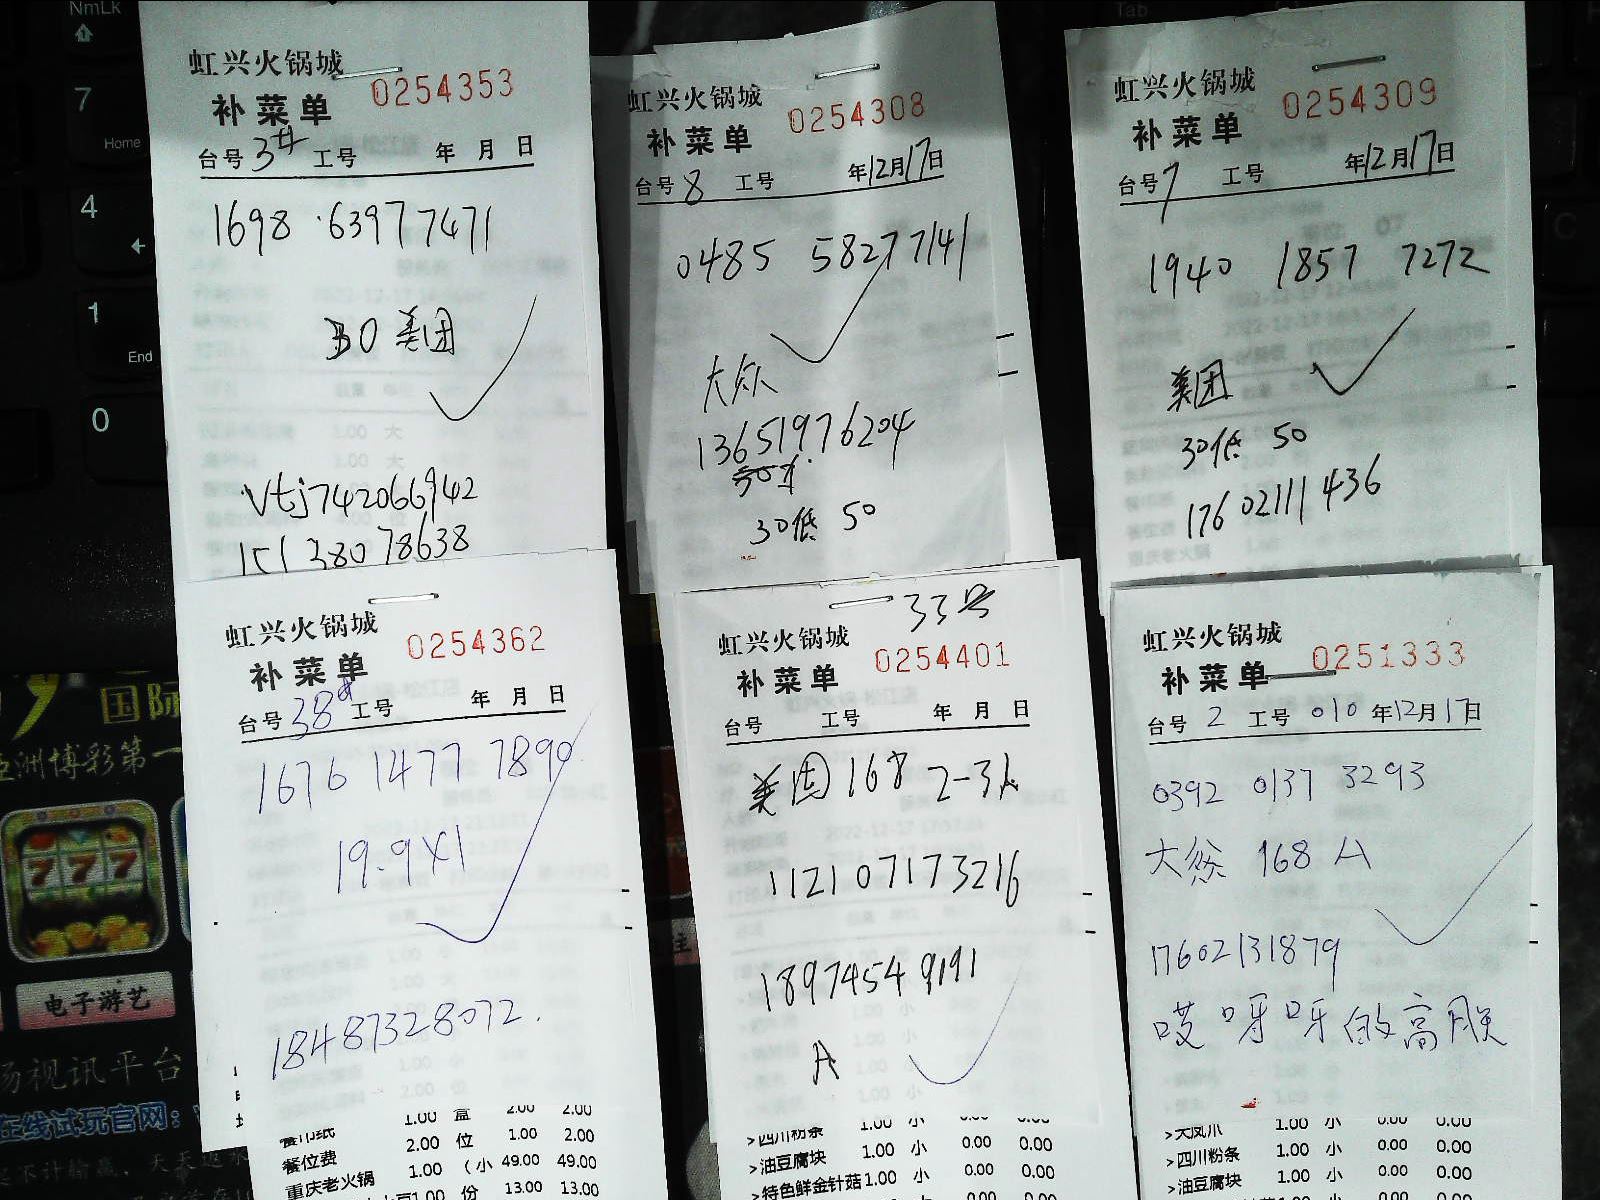 虹兴火锅城
补菜单 0254353
台号 3# 工号 年 月 日
1698 ·63977471
30 美团
Vtj742066942
15138078638
虹兴火锅城
补菜单 0254308
台号 8 工号 年12月17日
0485 58277141
大众
13651976204
30低 50
虹兴火锅城
补菜单 0254309
台号 7 工号 年12月17日
1940 1857 7272
美团
30低 50
17602111436
虹兴火锅城
补菜单 0254362
台号 38# 工号 年 月 日
1676 1477 7890
19.9X1
18487328072.
餐巾纸 1.00 盒 2.00 2.00
餐位费 2.00 位 1.00 2.00
重庆老火锅 1.00 (小 49.00 49.00
1.00 份 13.00 13.00
33号
虹兴火锅城
补菜单 0254401
台号 工号 年 月 日
美团168 2-3人
112107173216
18974549191
A
>四川粉条 1.00 小 0.00 0.00
>油豆腐块 1.00 小 0.00 0.00
>特色鲜金针菇 1.00 小 0.00 0.00
虹兴火锅城
补菜单 0251333
台号 2 工号 010 年12月17日
0392 0137 3293
大众 168 A
17602131879
哎呀呀的高朋
>大凤爪 1.00 小 0.00 0.00
>四川粉条 1.00 小 0.00 0.00
>油豆腐块 1.00 小 0.00 0.00
NmLk
7
Home
4
←
1
End
0
Tab
C
国际
亚洲博彩第一
777
电子游艺
场视讯平台
在线试玩官网: